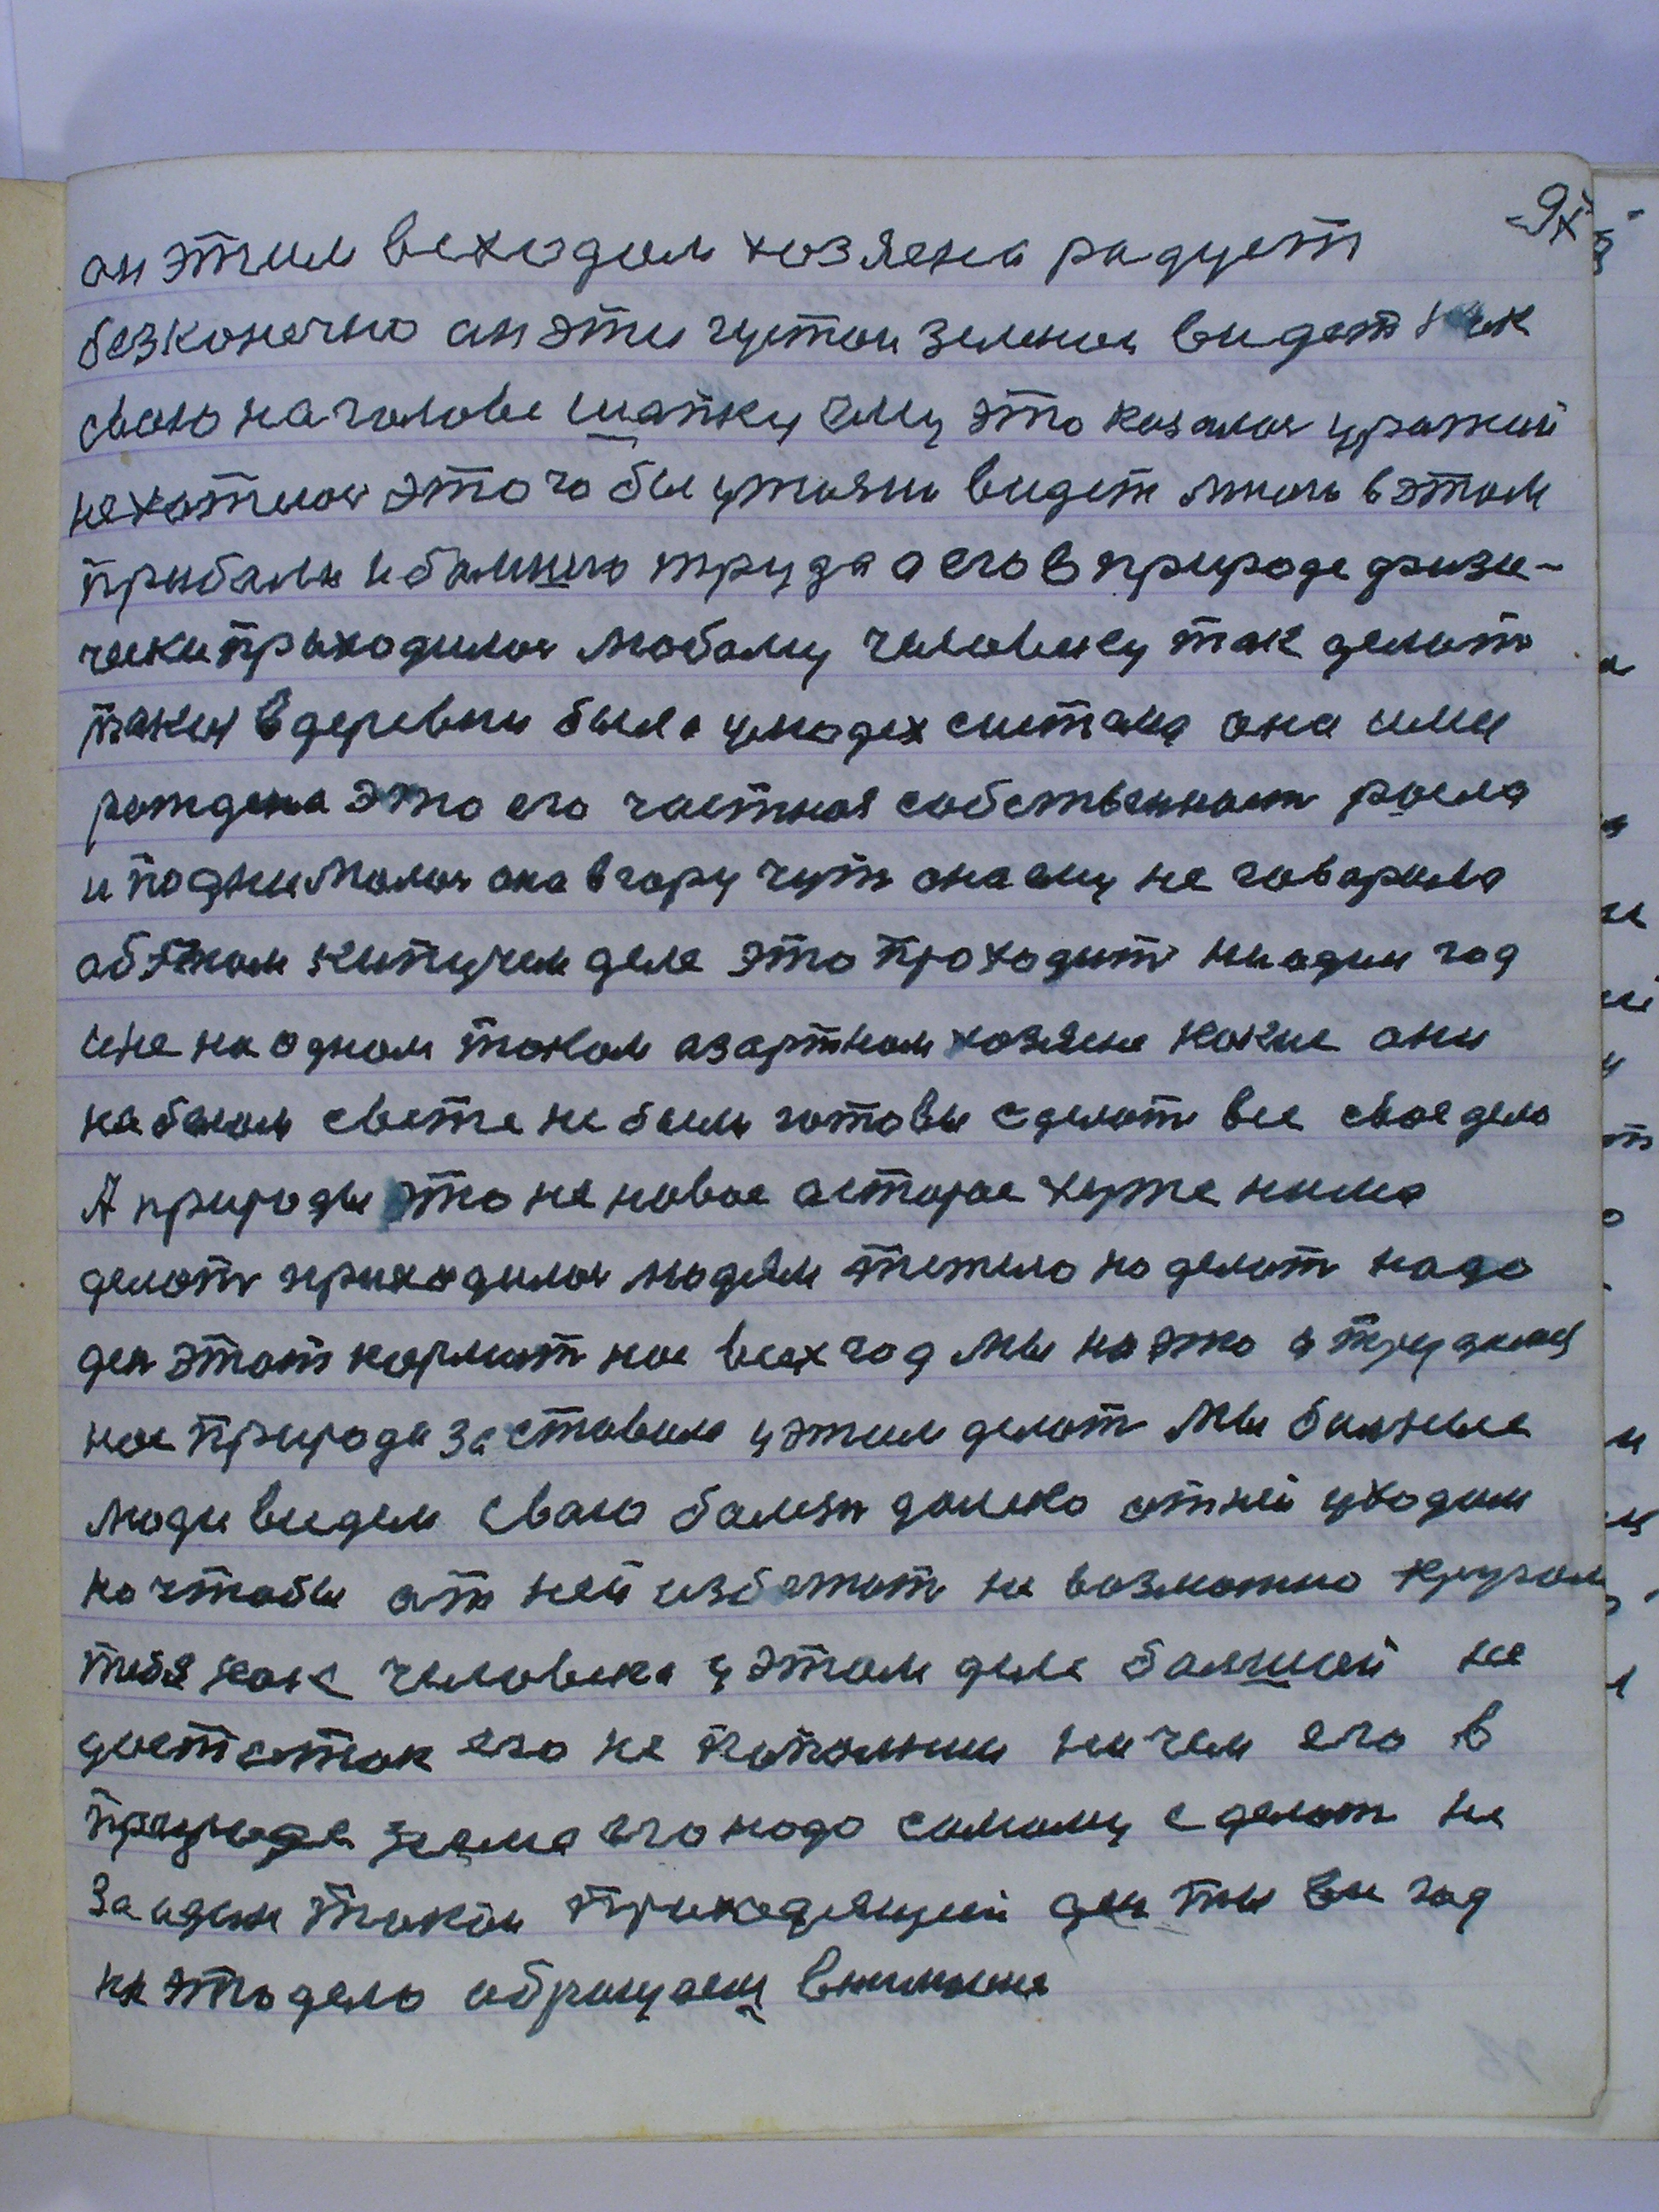 9х
ан этим веходом хозяена радует
безконечно ан эти густои зеленои видет как
сваю на голове шапку ему это казалос уражий
не хотелос этого бы ужазни видет много в этом
прибали и бальшего труда а его в природе физи-
чески прыходилос любому человеку так делат
такея в деревни была у людех систама она ими
рождена это его частная собственност расла
и поднималас ана вгору чут она ему не говарила
аб этом кипучем деле это проходит ни один год
и не на одном таком азартном хозяене какие ани
на белом свете не были готовы сделат все свое дело
А природы это не новое а старае хуже нима
делат приходилос людям тежело но делат надо
ден этот кормит нас всех год мы на это и трудимся
нас природа заставила у этим делат мы бальные
люди видем сваю балезн далеко от ней уходим
но чтобы ат ней избежат не возможно кругом
тебя как человека у этом деле балшой не
достаток его не пополниш ничем его в
природе нема его надо самому сделат не
за адин такои приходящий ден ты вы год
на это дело абращаеш внимание